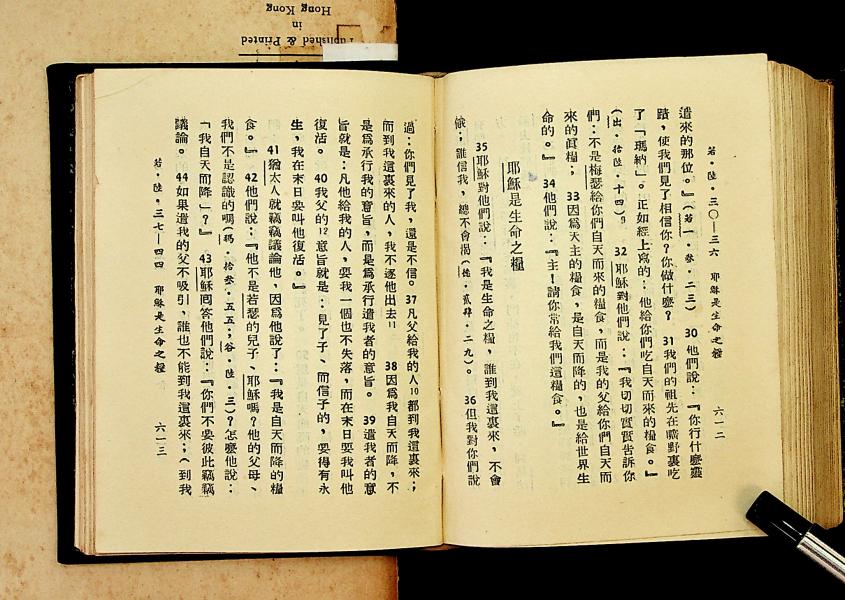 若·陸·三〇—三六　耶穌是生命之糧　六一二
遣來的那位。』(若一·叁·二三)　30 他們說：『你行什麼靈
蹟，使我們見了相信你？你做什麼？　31 我們的祖先在曠野裏吃
了「瑪納」。正如經上寫的：他給你們吃自天而來的糧食。』
(出·拾陸·十四)9　32 耶穌對他們說：『我切切實實告訴你
們：不是梅瑟給你們自天而來的糧食，而是我的父給你們自天而
來的眞糧；33 因爲天主的糧食，是自天而降的，也是給世界生
命的。』34 他們說：『主！請你常給我們這糧食。』
耶穌是生命之糧
35 耶穌對他們說：『我是生命之糧，誰到我這裏來，不會
餓；誰信我，總不會渴(德·貳肆·二九)。36 但我對你們說
過：你們見了我，還是不信。37 凡父給我的人10都到我這裏來；
而到我這裏來的人，我不逐他出去11　38 因爲我自天而降，不
是爲承行我的意旨，而是爲承行遣我者的意旨。39 遣我者的意
旨就是：凡他給我的人，要我一個也不失落，而在末日要我叫他
復活。40 我父的12意旨就是：見了子、而信子的，要得有永
生，我在末日要叫他復活。』
41 猶太人就竊竊議論他，因爲他說了：『我是自天而降的糧
食。』42 他們說：『他不是若瑟的兒子、耶穌嗎？他的父母、
我們不是認識的嗎(瑪·拾叁·五五；谷·陸·三)？怎麼他說：
「我自天而降」？』43 耶穌囘答他們說：『你們不要彼此竊竊
議論。44 如果遣我的父不吸引，誰也不能到我這裏來；(到我
若·陸·三七—四四　耶穌是生命之糧　六一三
Published & Printed
in
Hong Kong